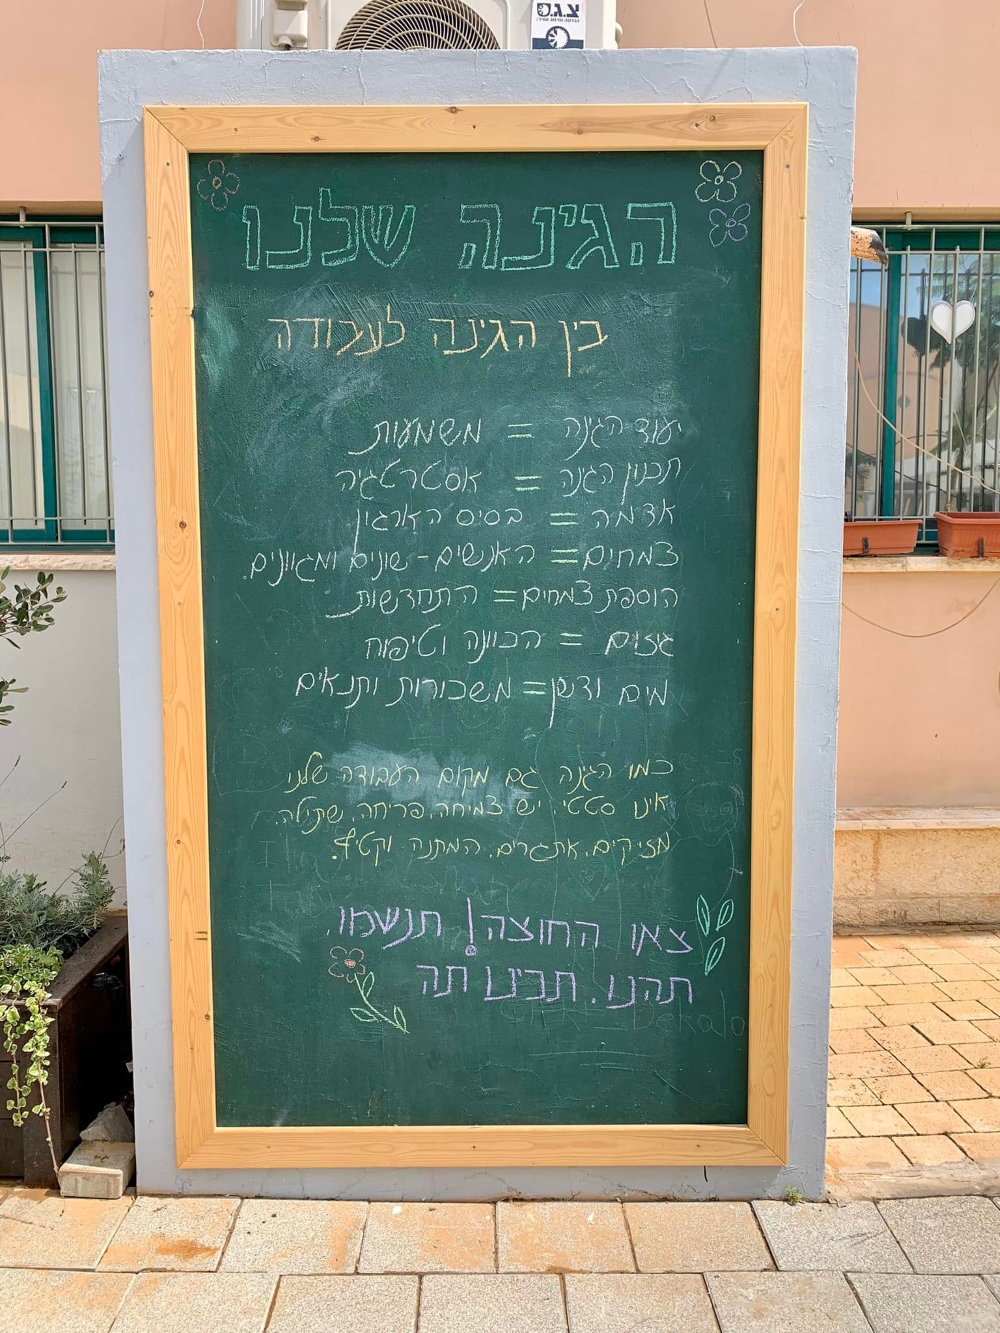 צ.ג.ם
הגינה שלנו
בין הגינה לעבודה
יעוד הגינה = משמעות
תכנון הגינה = אסטרטגיה
אדמה = בסיס הארגון
צמחים = האנשים - שונים ומגוונים
הוספת צמחים = התחדשות
גיזום = הכוונה וטיפוח
מים ודשן = משכורות ותנאים
כמו הגינה גם מקום העבודה שלנו
אינו סטטי. יש צמיחה, פריחה, שתילה,
מזיקים, אתגרים, המתנה וקטיף.
צאו החוצה! תנשמו,
תהנו. תכינו תה